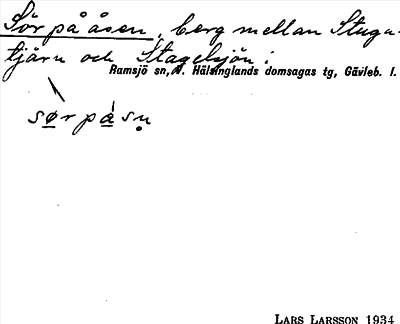 Sör på åsen, berg mellan Stuga-
tjärn och Stagelsjön i
Ramsjö sn, N. Hälsinglands domsagas tg, Gävleb. l.
sørpåsn̥
LARS LARSSON 1934